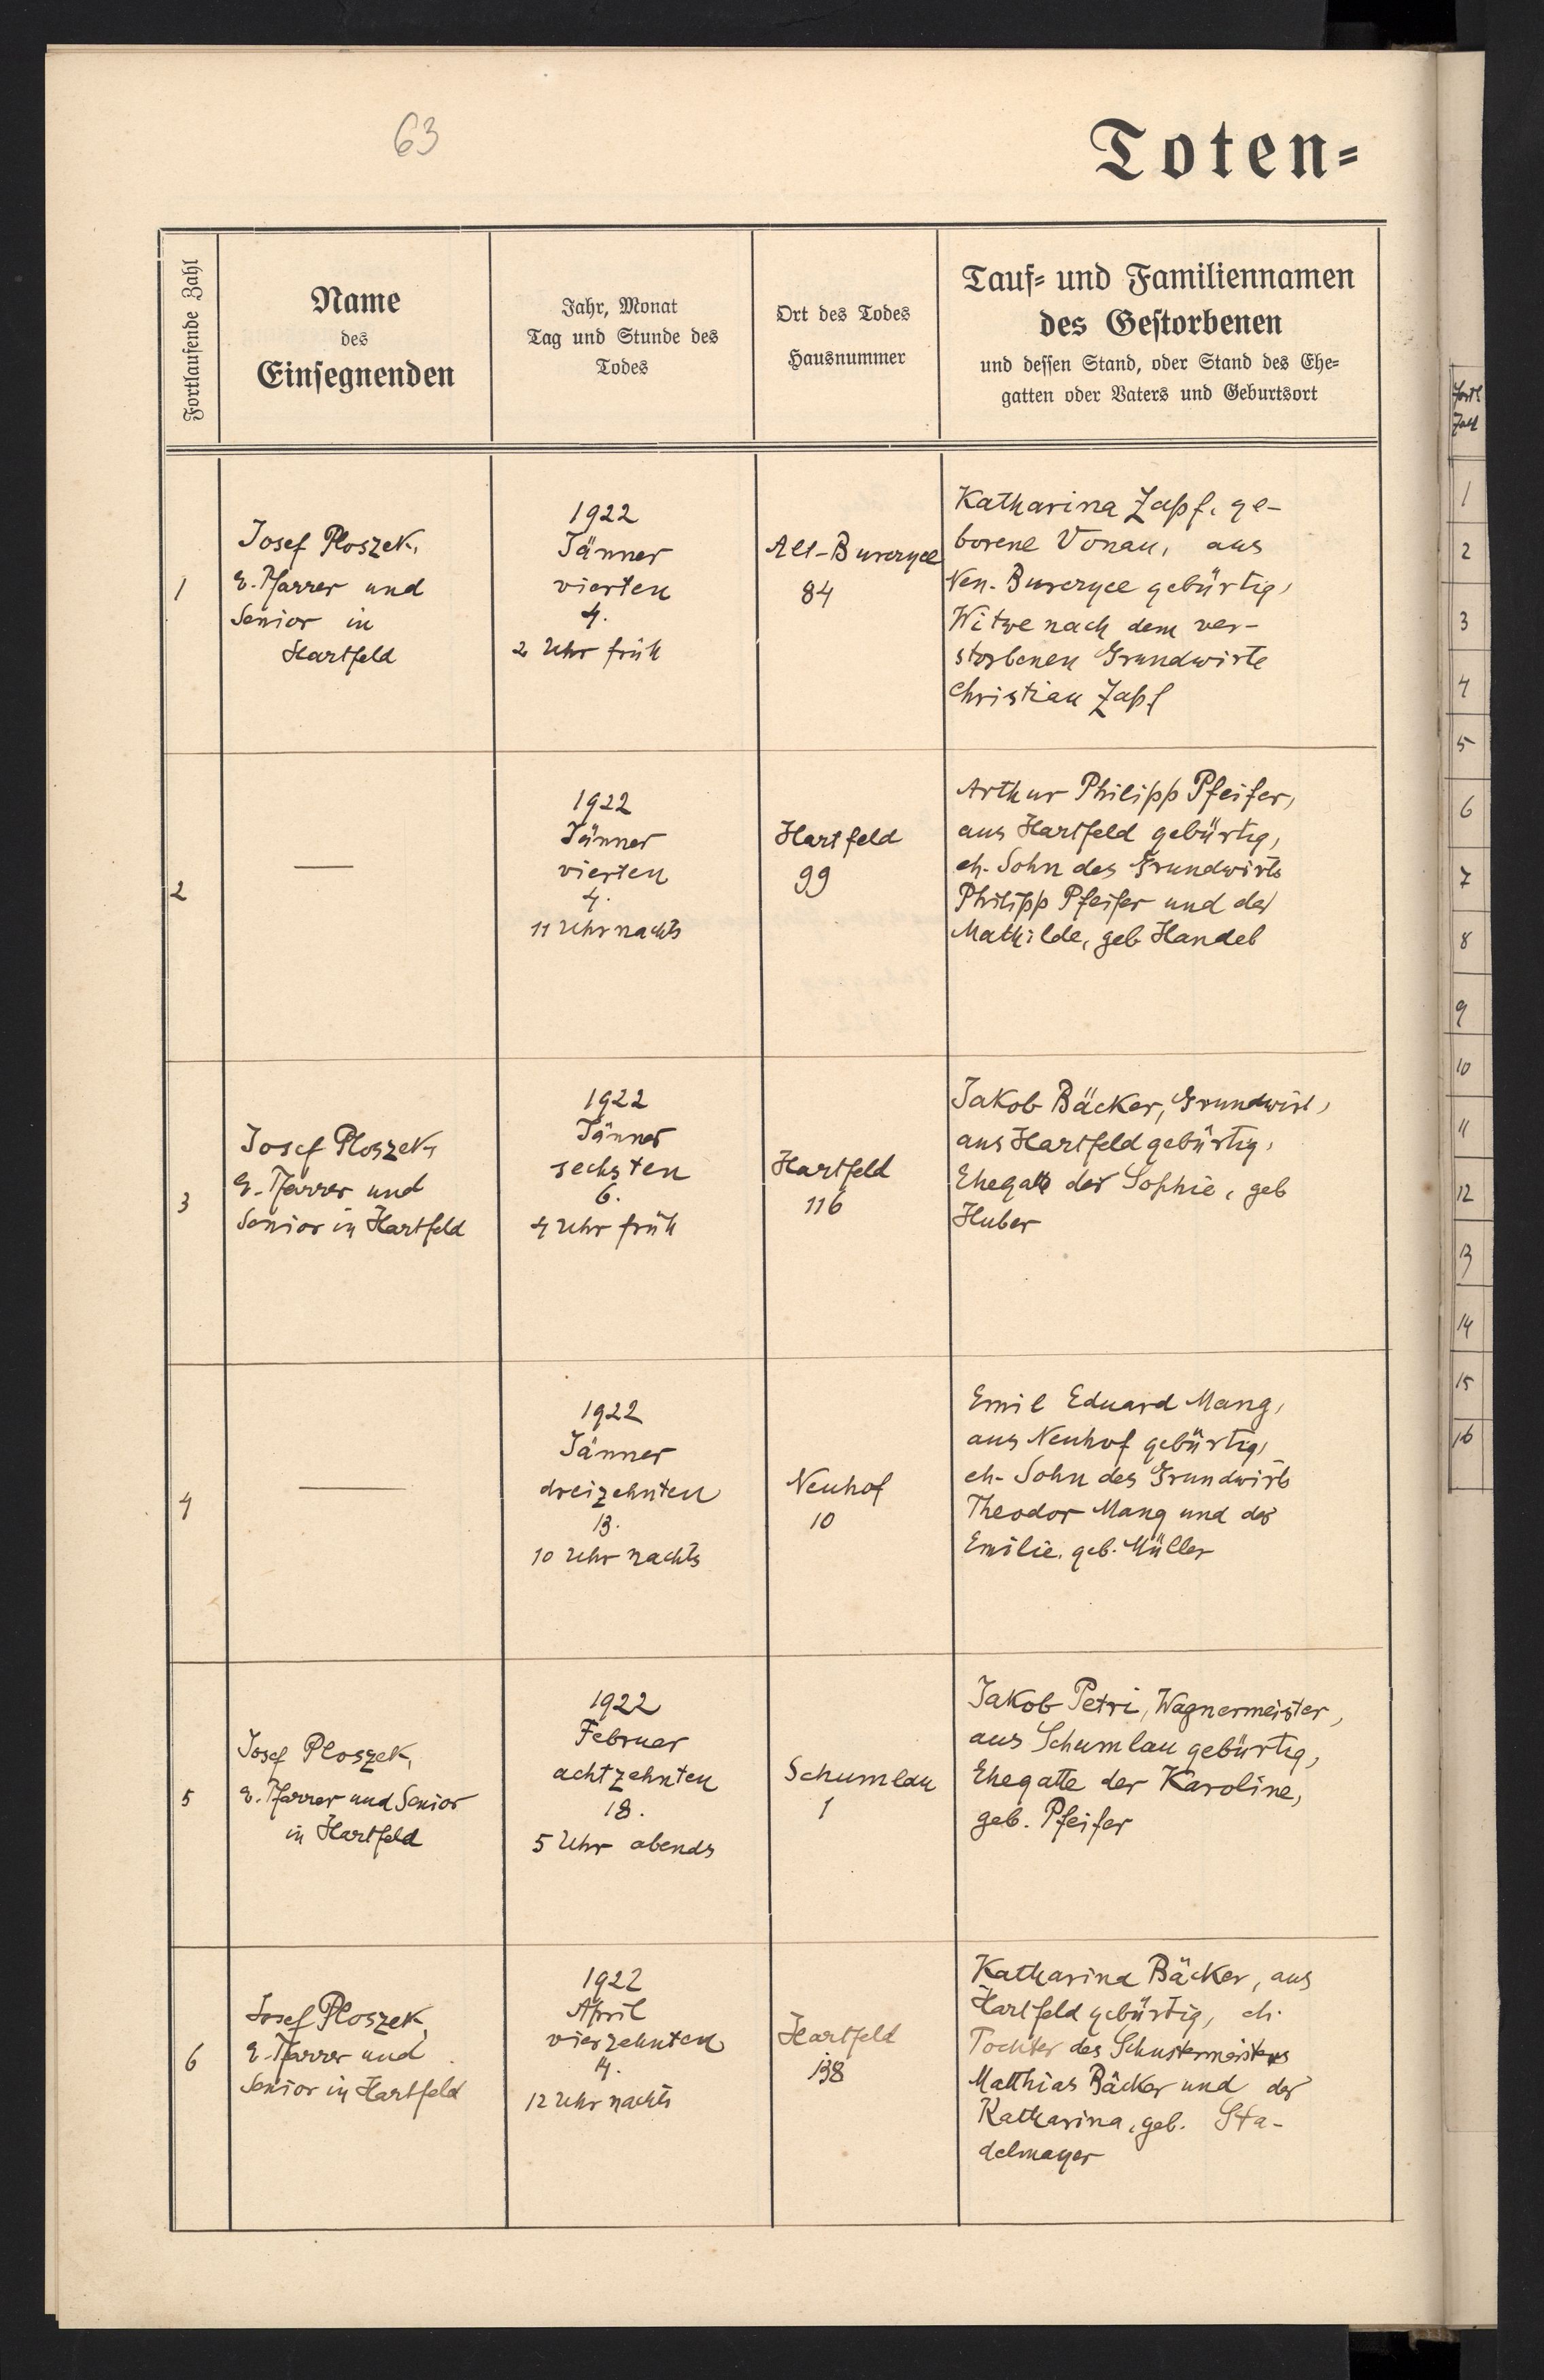 63
Toten=
Fortlaufende Zahl
Name
des
Einsegnenden
Jahr, Monat
Tag und Stunde des
Todes
Ort des Todes
Hausnummer
Tauf= und Familiennamen
des Gestorbenen
und dessen Stand, oder Stand des Ehe=
gatten oder Vaters und Geburtsort
1
Josef Ploszek,
E. Pfarrer und
Senior in
Hartfeld
1922
Jänner
vierten
4.
2 Uhr früh
Alt-Burczyce
84
Katharina Zapf, ge-
borene Vonau, aus
Neu-Burczyce gebürtig,
Witwe nach dem ver-
storbenen Grundwirte
Christian Zapf
2
—
1922
Jänner
vierten
4.
11 Uhr nachts
Hartfeld
99
Arthur Philipp Pfeifer,
aus Hartfeld gebürtig,
eh. Sohn des Grundwirts
Philipp Pfeifer und der
Mathilde, geb Handel
3
Josef Ploszek,
E. Pfarrer und
Senior in Hartfeld
1922
Jänner
sechsten
6.
4 Uhr früh
Hartfeld
116
Jakob Bäcker, Grundwirt,
aus Hartfeld gebürtig,
Ehegatte der Sophie, geb
Huber
4
—
1922
Jänner
dreizehnten
13.
10 Uhr nachts
Neuhof
10
Emil Eduard Mang,
aus Neuhof gebürtig,
eh. Sohn des Grundwirts
Theodor Mang und der
Emilie, geb. Müller
5
Josef Ploszek,
E. Pfarrer und Senior
in Hartfeld
1922
Februar
achtzehnten
18.
5 Uhr abends
Schumlau
1
Jakob Petri, Wagnermeister,
aus Schumlau gebürtig,
Ehegatte der Karoline,
geb. Pfeifer
6
Josef Ploszek,
E. Pfarrer und
Senior in Hartfeld
1922
April
vierzehnten
14.
12 Uhr nachts
Hartfeld
138
Katharina Bäcker, aus
Hartfeld gebürtig, eh.
Tochter des Schustermeisters
Matthias Bäcker und der
Katharina, geb. Sta-
delmayer
Fortl
Zahl
1
2
3
4
5
6
7
8
9
10
11
12
13
14
15
16